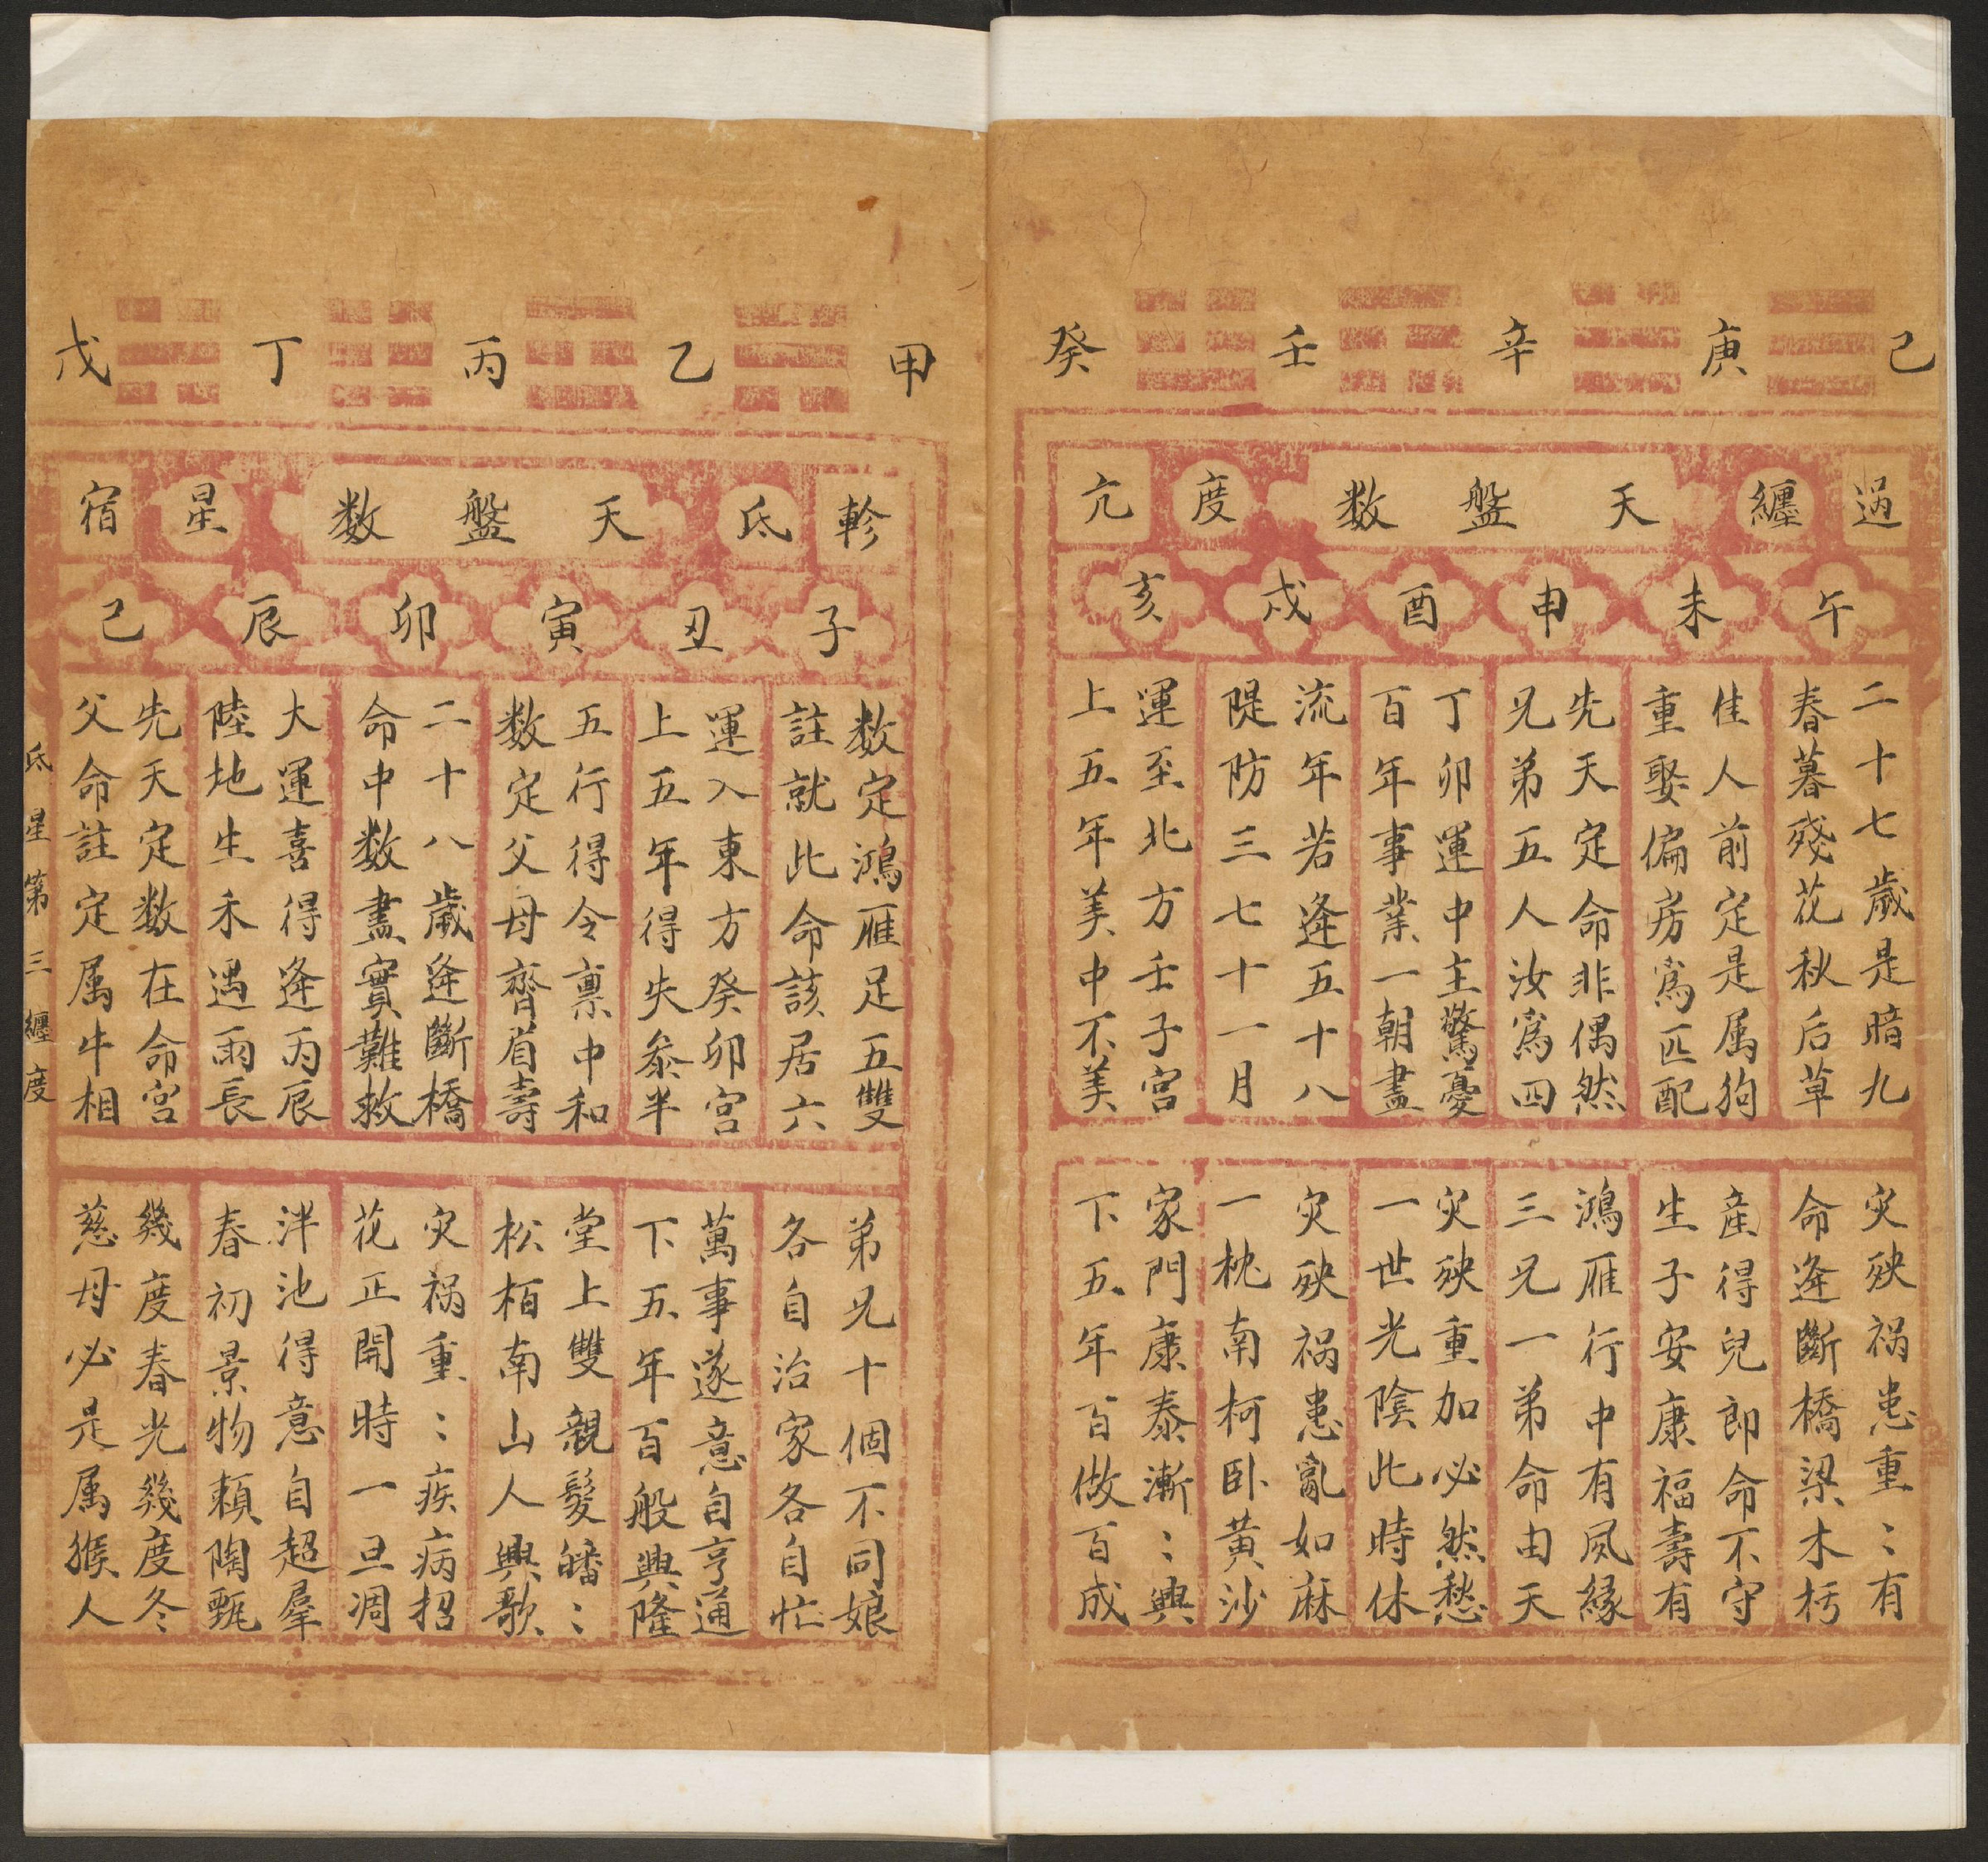 己 庚 辛 壬 癸
過 纏 天盤数 度 亢
午 未 申 酉 戌 亥
二十七歲是暗九
春暮殘花秋后草
佳人前定是属狗
重娶偏房為匹配
先天定命非偶然
兄弟五人汝為四
丁卯運中主驚憂
百年事業一朝盡
流年若逢五十八
隄防三七十一月
運至北方壬子宮
上五年美中不美
灾殃祸患重〻有
命逢斷橋梁木朽
産得兒郎命不守
生子安康福壽有
鴻雁行中有夙緣
三兄一弟命由天
灾殃重加必然愁
一世光陰此時休
灾殃祸患亂如麻
一枕南柯卧黃沙
家門康泰漸〻興
下五年百做百成
甲 乙 丙 丁 戊
軫 氐 天盤数 星 宿
子 丑 寅 卯 辰 巳
数定鴻雁足五雙
註就此命該居六
運入東方癸卯宮
上五年得失叅半
五行得令禀中和
数定父母齊眉壽
二十八歲逢斷橋
命中数盡實難救
大運喜得逢丙辰
陸地生禾遇雨長
先天定数在命宮
父命註定属牛相
弟兄十個不同娘
各自治家各自忙
萬事遂意自亨通
下五年百般興隆
堂上雙親髮皤〻
松栢南山人興歌
灾祸重〻疾病招
花正開時一旦凋
泮池得意自超羣
春初景物頼陶甄
幾度春光幾度冬
慈母必是属猴人
氐星第三纏度